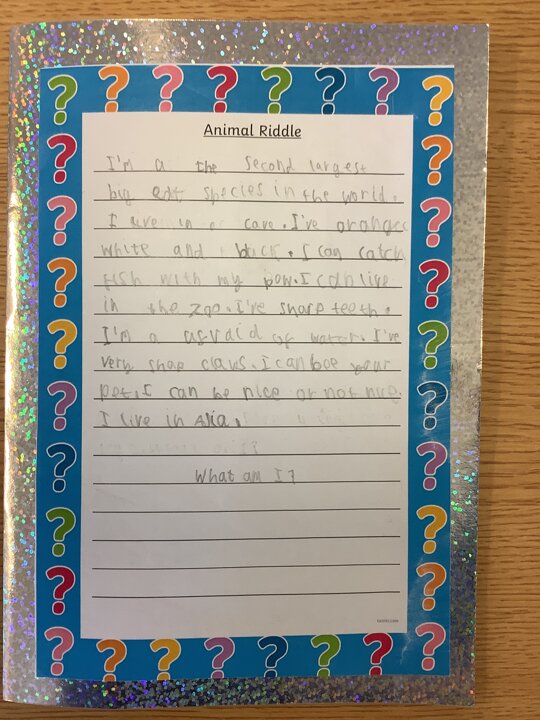 Animal Riddle
I'm a the second largest
big cat species in the world.
I live in a cave. I've orange
white and black. I can catch
fish with my pow. I can live
in the zoo. I've sharp teeth.
I'm a usvaid of water. I've
very shap claws. I can boe your
pet. I can be nice or not nice.
I live in Asia.
What am I?